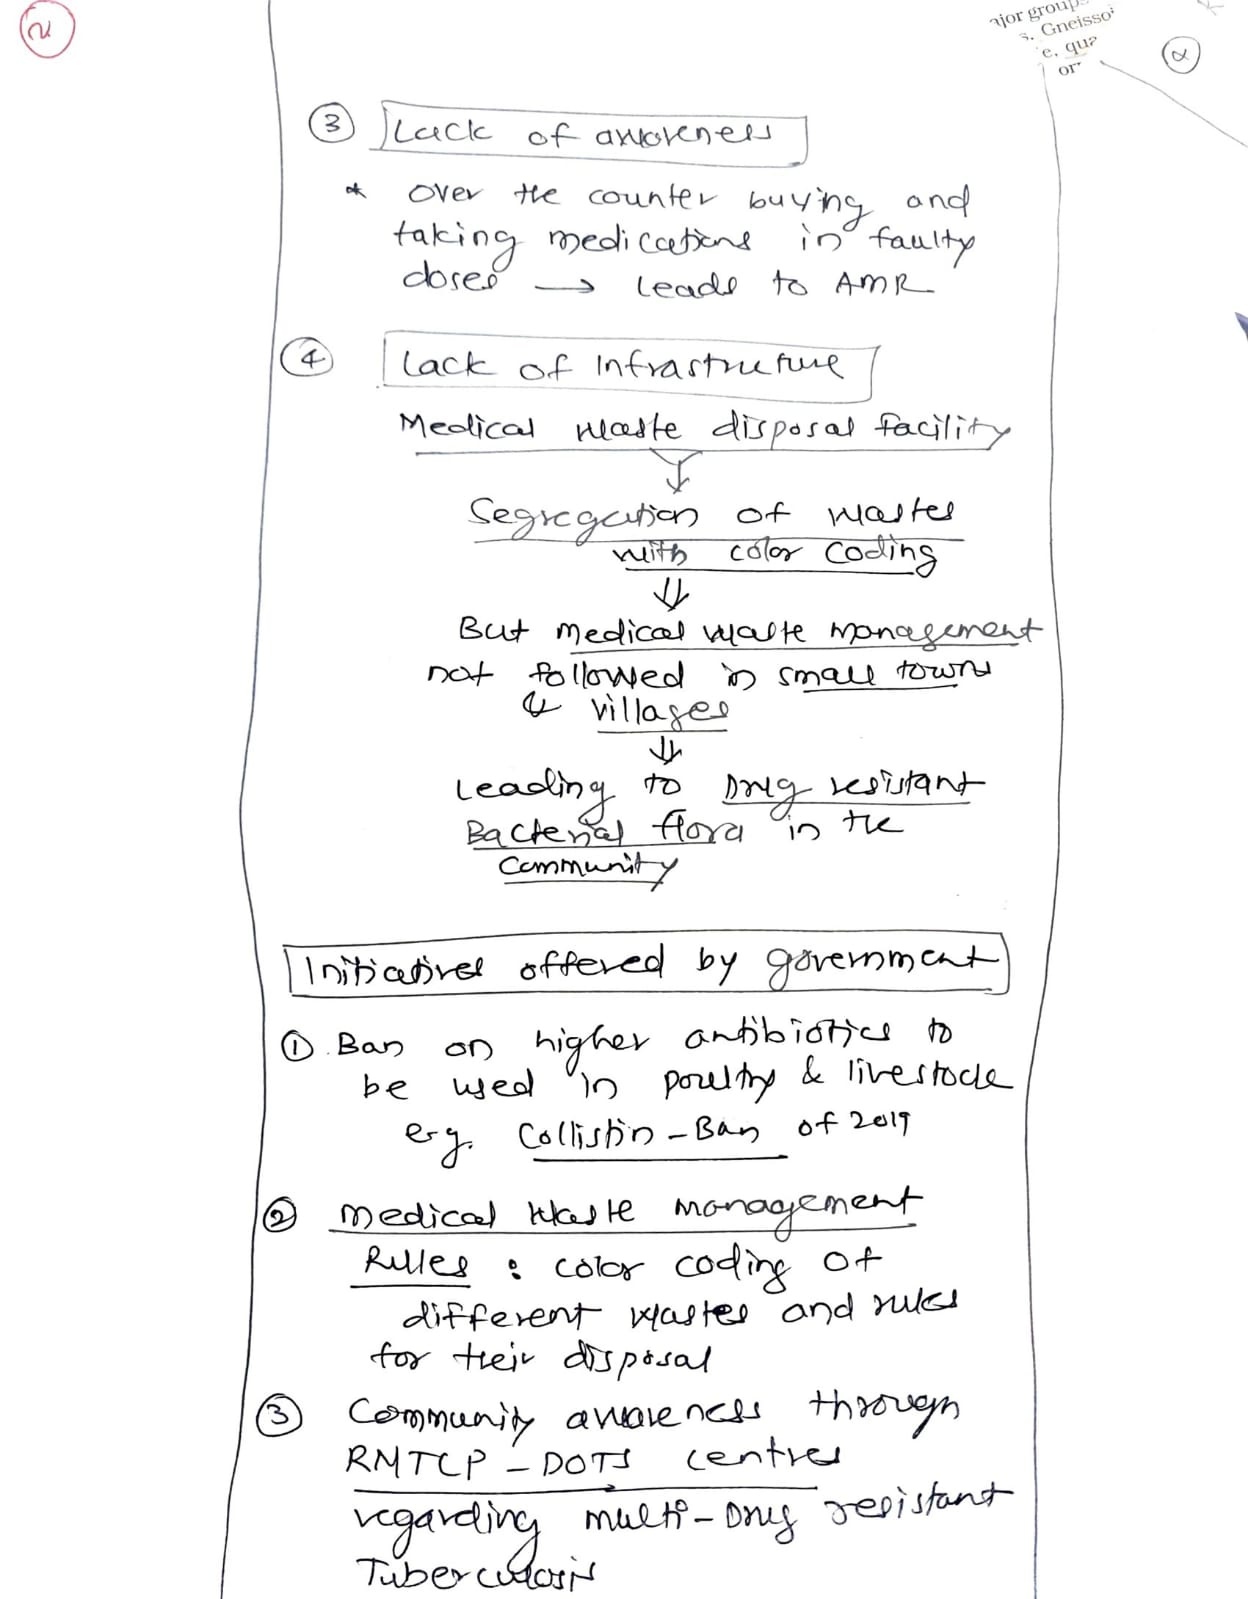 ajor group
s. Gneisso
e, qua
or
③ Lack of awareness
* over the counter buying and
taking medications in faulty
doses → leads to AMR
④ Lack of Infrastructure
Medical waste disposal facility
Segregation of wastes
with color coding
⇓
But medical waste management
not followed in small towns
& villages
⇓
Leading to Drug resistant
Bacterial flora in the
Community
Initiatives offered by government
① Ban on higher antibiotics to
be used in poultry & livestock
e.g. Collistin - Ban of 2019
② Medical Waste management
Rules : color coding of
different wastes and rules
for their disposal
③ Community awareness through
RNTCP - DOTS centres
regarding multi-Drug resistant
Tuberculosis